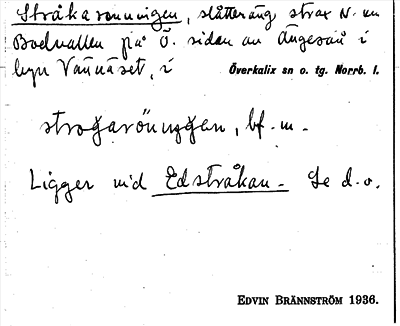 Stråkarönningen, slåtteräng strax N. om
Bodvallen på Ö. sidan av Ängesån i
byn Vännäset, i Överkalix sn o. tg. Norrb. l.
stroğarönuŋğan, bf. m.
Ligger vid Edstråkan. Se d. o.
EDVIN BRÄNNSTRÖM 1936.